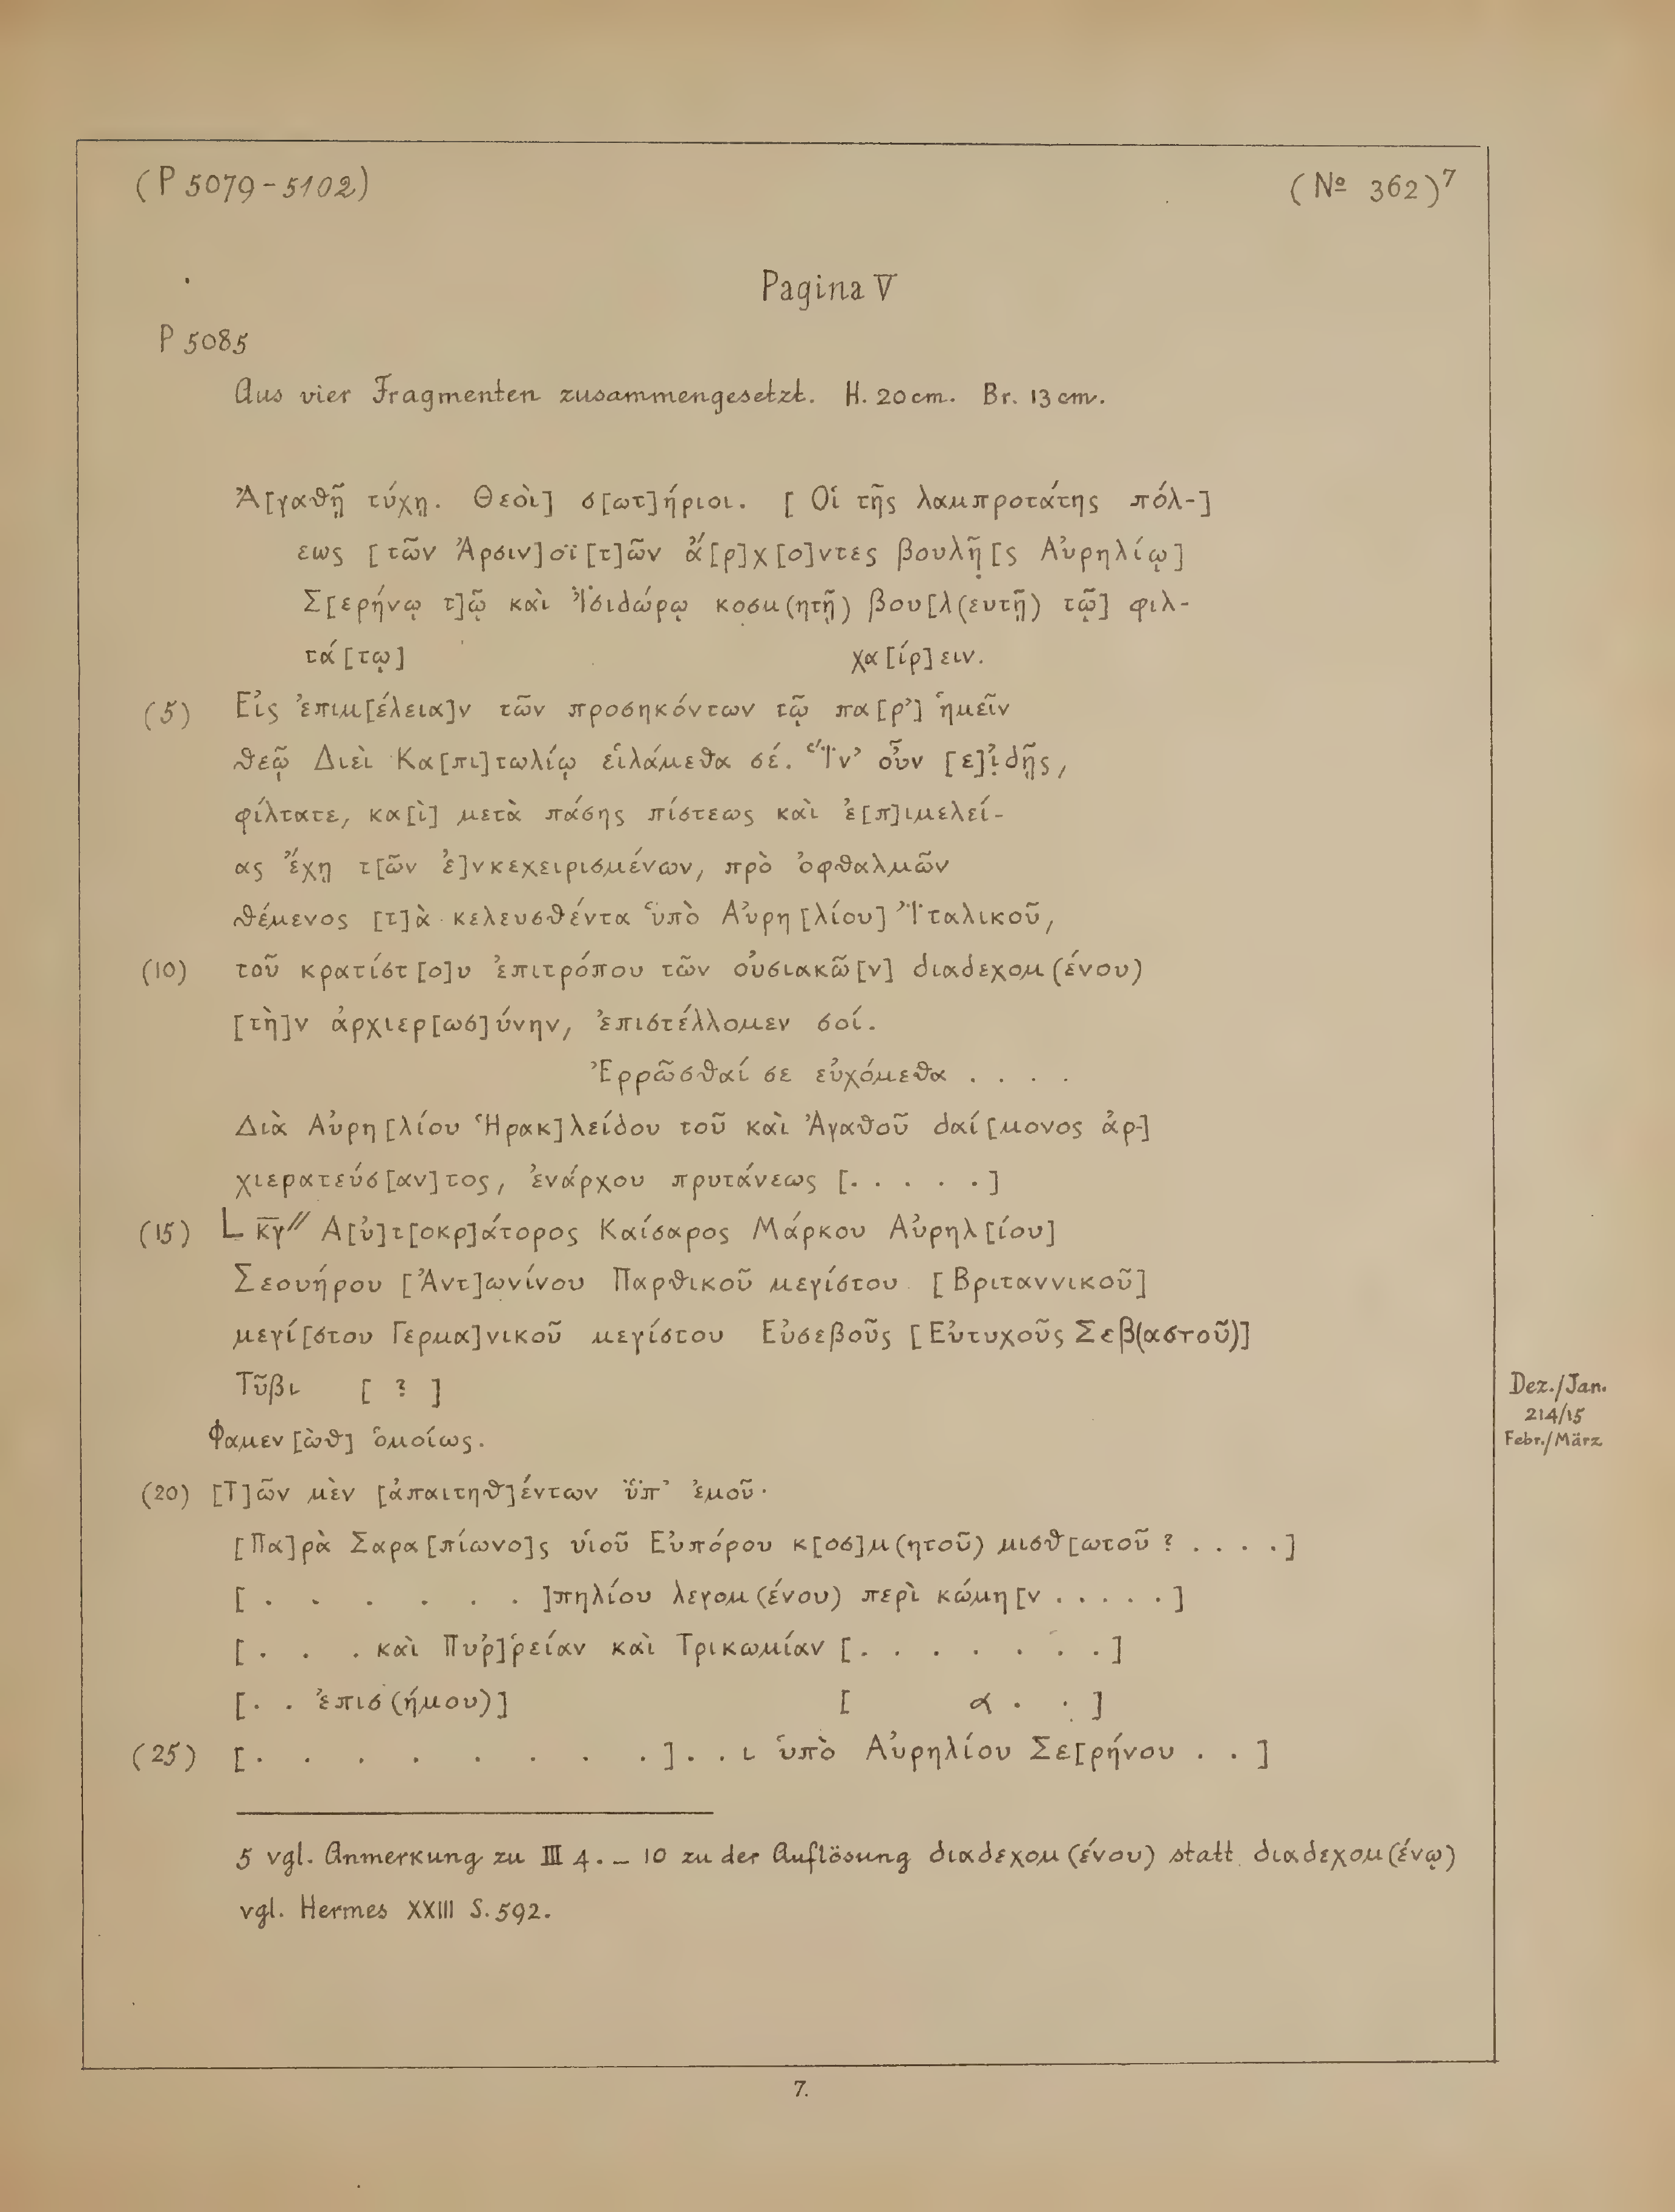 (P 5079-5102) (Nº 362)⁷
Pagina V
P 5085
Aus vier Fragmenten zusammengesetzt. H. 20 cm. Br. 13 cm.
Ἀ[γαθῇ τύχῃ. Θεοὶ] σ[ωτ]ήριοι. [Οἱ τῆς λαμπροτάτης πόλ-]
εως [τῶν Ἀρσιν]οϊ[τ]ῶν ἄ[ρ]χ[ο]ντες βουλῆ̣[ς Αὐρηλίῳ]
Σ[ερήνῳ τ]ῷ καὶ Ἰ̈σιδώρῳ κοσμ(ητῇ) βου[λ(ευτῇ) τῷ] φιλ-
τά[τῳ] χα[ίρ]ειν.
(5) Εἰς ἐπιμ[έλεια]ν τῶν προσηκόντων τῷ πα[ρ’] ἡμεῖν
θεῷ Διεὶ Κα[πι]τωλίῳ εἱλάμεθα σέ. Ἵ̈ν’ οὖν [ε]ἰ̣δῇς,
φίλτατε, κα[ὶ] μετὰ πάσης πίστεως καὶ ἐ[π]ιμελεί-
ας ἔχῃ τ[ῶν ἐ]νκεχειρισμένων, πρὸ ὀφθαλμῶν
θέμενος [τ]ὰ κελευσθέντα ὑπὸ Αὐρη[λίου] Ἰ̈ταλικοῦ,
(10) τοῦ κρατίστ[ο]υ ἐπιτρόπου τῶν οὐσιακῶ[ν] διαδεχομ(ένου)
[τὴ]ν ἀρχιερ[ωσ]ύνην, ἐπιστέλλομεν σοί.
Ἐρρῶσθαί σε εὐχόμεθα . . . .
Διὰ Αὐρη[λίου Ἡρακ]λείδου τοῦ καὶ Ἀγαθοῦ δαί[μονος ἀρ-]
χιερατεύσ[αν]τος, ἐνάρχου πρυτάνεως [. . . . .]
(15) L κ̅γ̅// Α[ὐ]τ[οκρ]άτορος Καίσαρος Μάρκου Αὐρηλ[ίου]
Σεουήρου [Ἀντ]ωνίνου Παρθικοῦ μεγίστου [Βριταννικοῦ]
μεγί[στου Γερμα]νικοῦ μεγίστου Εὐσεβοῦς [Εὐτυχοῦς Σεβ(αστοῦ)]
Τῦβι [ ? ]
Dez./Jan.
214/15
Febr./März
Φαμεν[ὼθ] ὁμοίως.
(20) [Τ]ῶν μὲν [ἀπαιτηθ]έντων ὑ̈π’ ἐμοῦ·
[Πα]ρὰ Σαρα[πίωνο]ς υἱοῦ Εὐπόρου κ[οσ]μ(ητοῦ) μισθ[ωτοῦ ? . . . .]
[. . . . . .]πηλίου λεγομ(ένου) περὶ κώμη[ν . . . . .]
[. . . καὶ Πυῤ]ῥείαν καὶ Τρικωμίαν [. . . . . . .]
[. . ἐπισ(ήμου)] [ α . . ]
(25) [. . . . . . . .] . . ι ὑπὸ Αὐρηλίου Σε[ρήνου . . ]
5 vgl. Anmerkung zu III 4. – 10 zu der Auflösung διαδεχομ(ένου) statt διαδεχομ(ένῳ)
vgl. Hermes XXIII S. 592.
7.